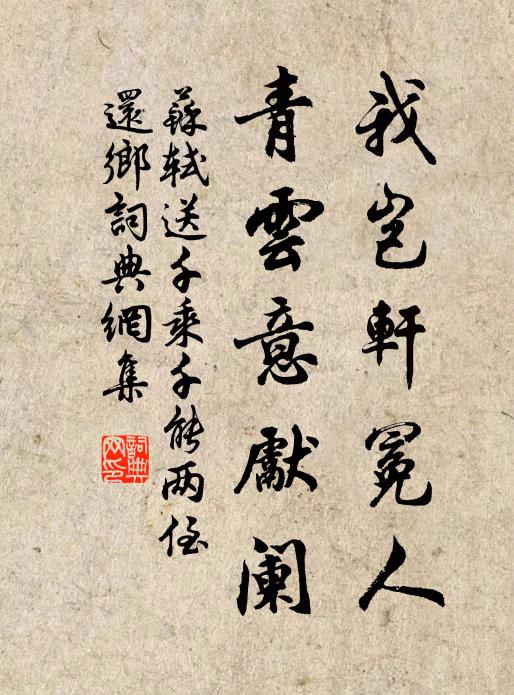 我岂軒冕人
青雲意獻闌
蘇軾送千乘千能两侄
還鄉詞典網集
詞典網印